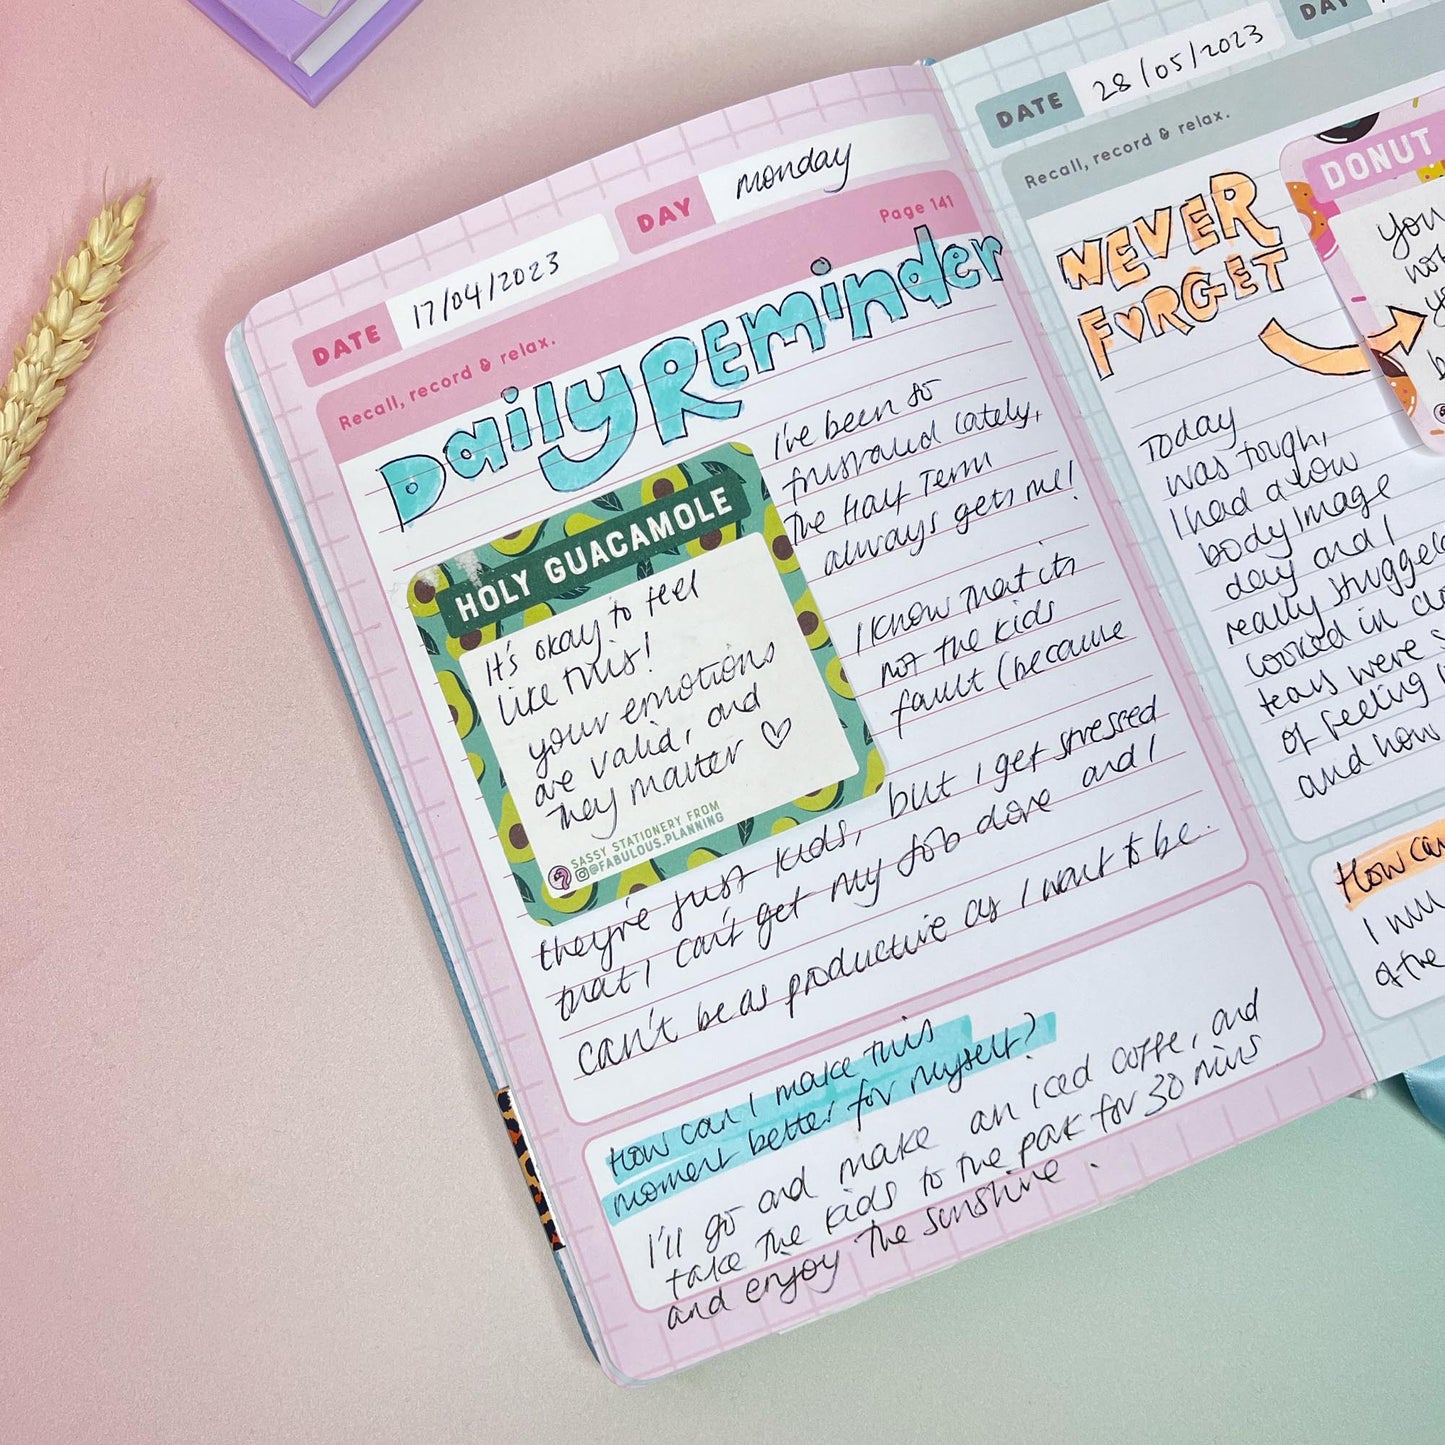 DATE 17/04/2023 DAY monday
Recall, record & relax. Page 141
Daily Reminder
HOLY GUACAMOLE
It's okay to feel
like this!
your emotions
are valid, and
they matter ♡
SASSY STATIONERY FROM
@FABULOUS.PLANNING
I've been so
frustrated lately,
The Half Term
always gets me!
I know that its
not the kids
fault (because
they're just kids, but I get stressed
that I can't get my job done and I
can't be as productive as I want to be.
How can I make this
moment better for myself?
I'll go and make an iced coffe, and
take the kids to the park for 30 mins
and enjoy the sunshine.
DATE 28/05/2023 DAY
Recall, record & relax.
NEVER
FORGET
DONUT
You
Today
was tough,
I had a low
body image
day and I
really
looked in
tears were
of feeling
and how
How can
I will
of the